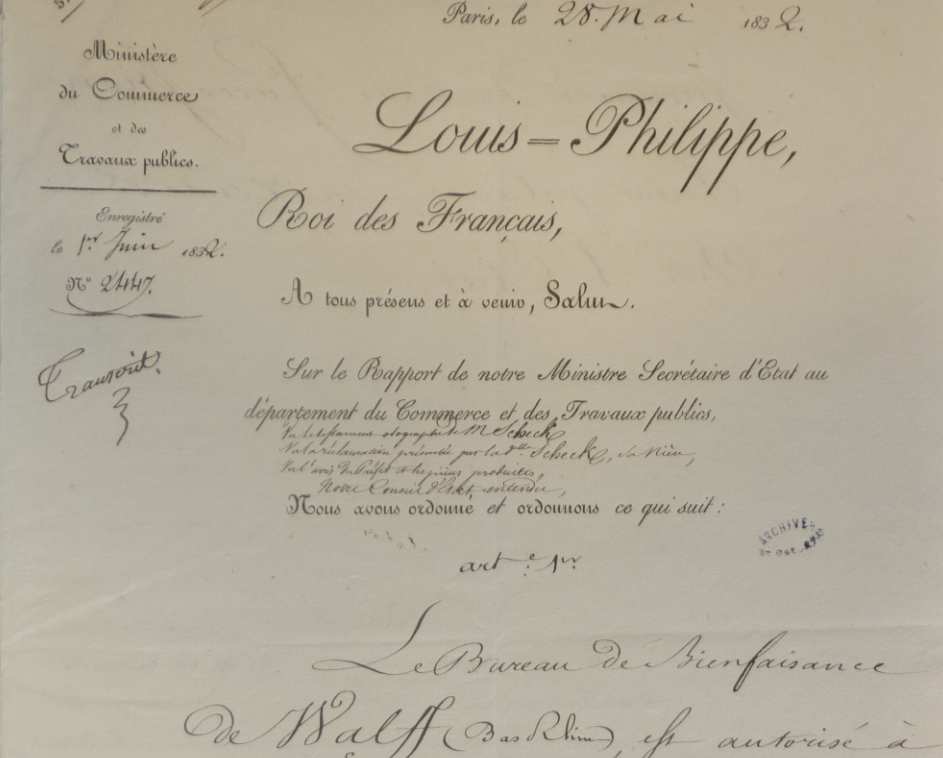 Paris, le 28. Mai 1832.
Ministère
du Commerce
et des
Travaux publics.
Enregistré
le 1er Juin 1832.
No 2447.
Transcrit.
Louis=Philippe,
Roi des Français,
A tous présens et à venir, Salut.
Sur le Rapport de notre Ministre Secrétaire d'Etat au
département du Commerce et des Travaux publics,
Vu le testament olographe de M Scheck
Vu la réclamation présentée par la dlle Scheck, sa nièce,
Vu l'avis du Préfet et les pièces produites,
Notre Conseil d'Etat entendu,
Nous avons ordonné et ordonnons ce qui suit :
ARCHIVES
art e 1er
Le Bureau de Bienfaisance
de Walff (Bas Rhin), est autorisé à